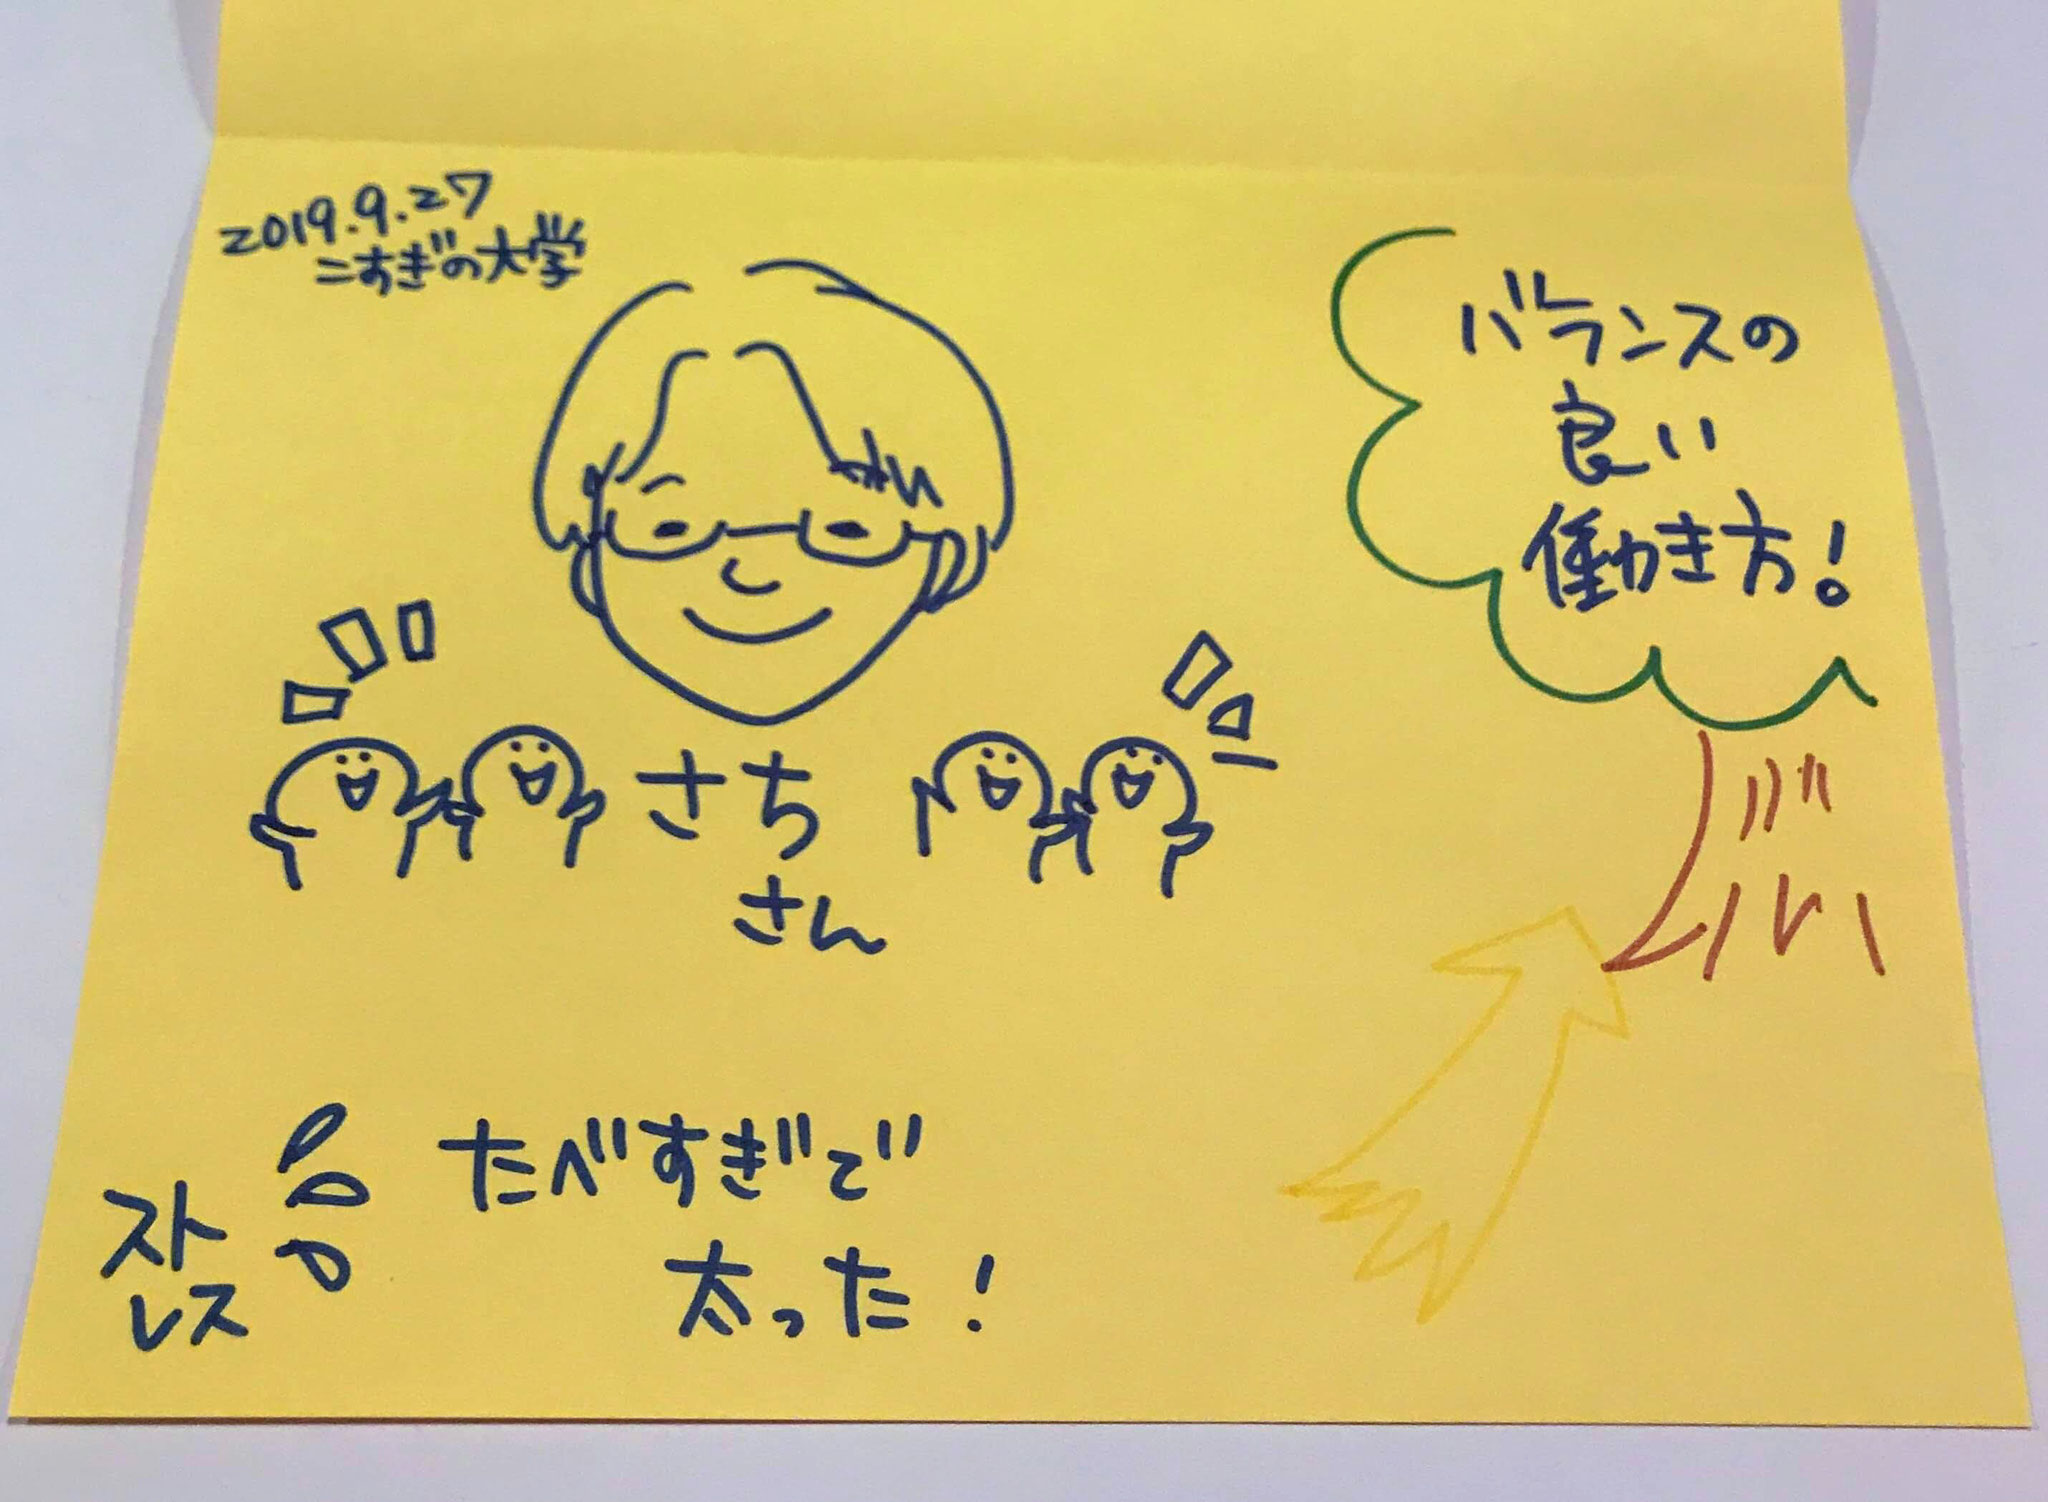 2019.9.27
こすぎの大学
バランスの
良い
働き方!
さち
さん
たべすぎで
太った!
スト
レス